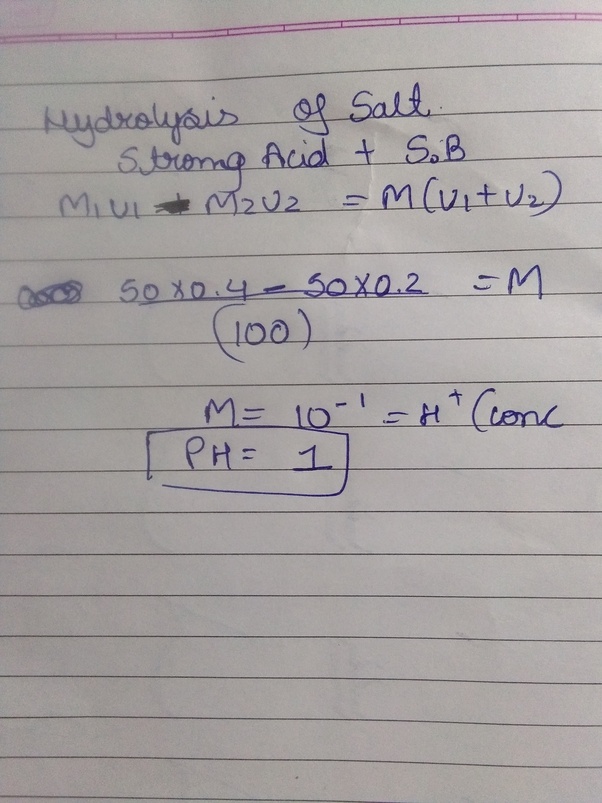 Hydrolysis of Salt.
Strong Acid + S.B
M1V1 - M2V2 = M(V1+V2)
50×0.4 - 50×0.2 = M
(100)
M = 10⁻¹ = H⁺ (conc
PH = 1